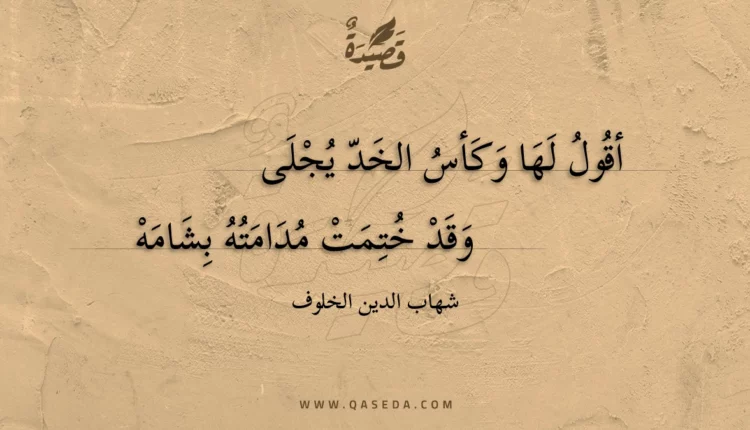 قَصِيدَةٌ
أقُولُ لَهَا وَكَأسُ الخَدّ يُجْلَى
وَقَدْ خُتِمَتْ مُدَامَتُهُ بِشَامَهْ
شهاب الدين الخلوف
WWW.QASEDA.COM